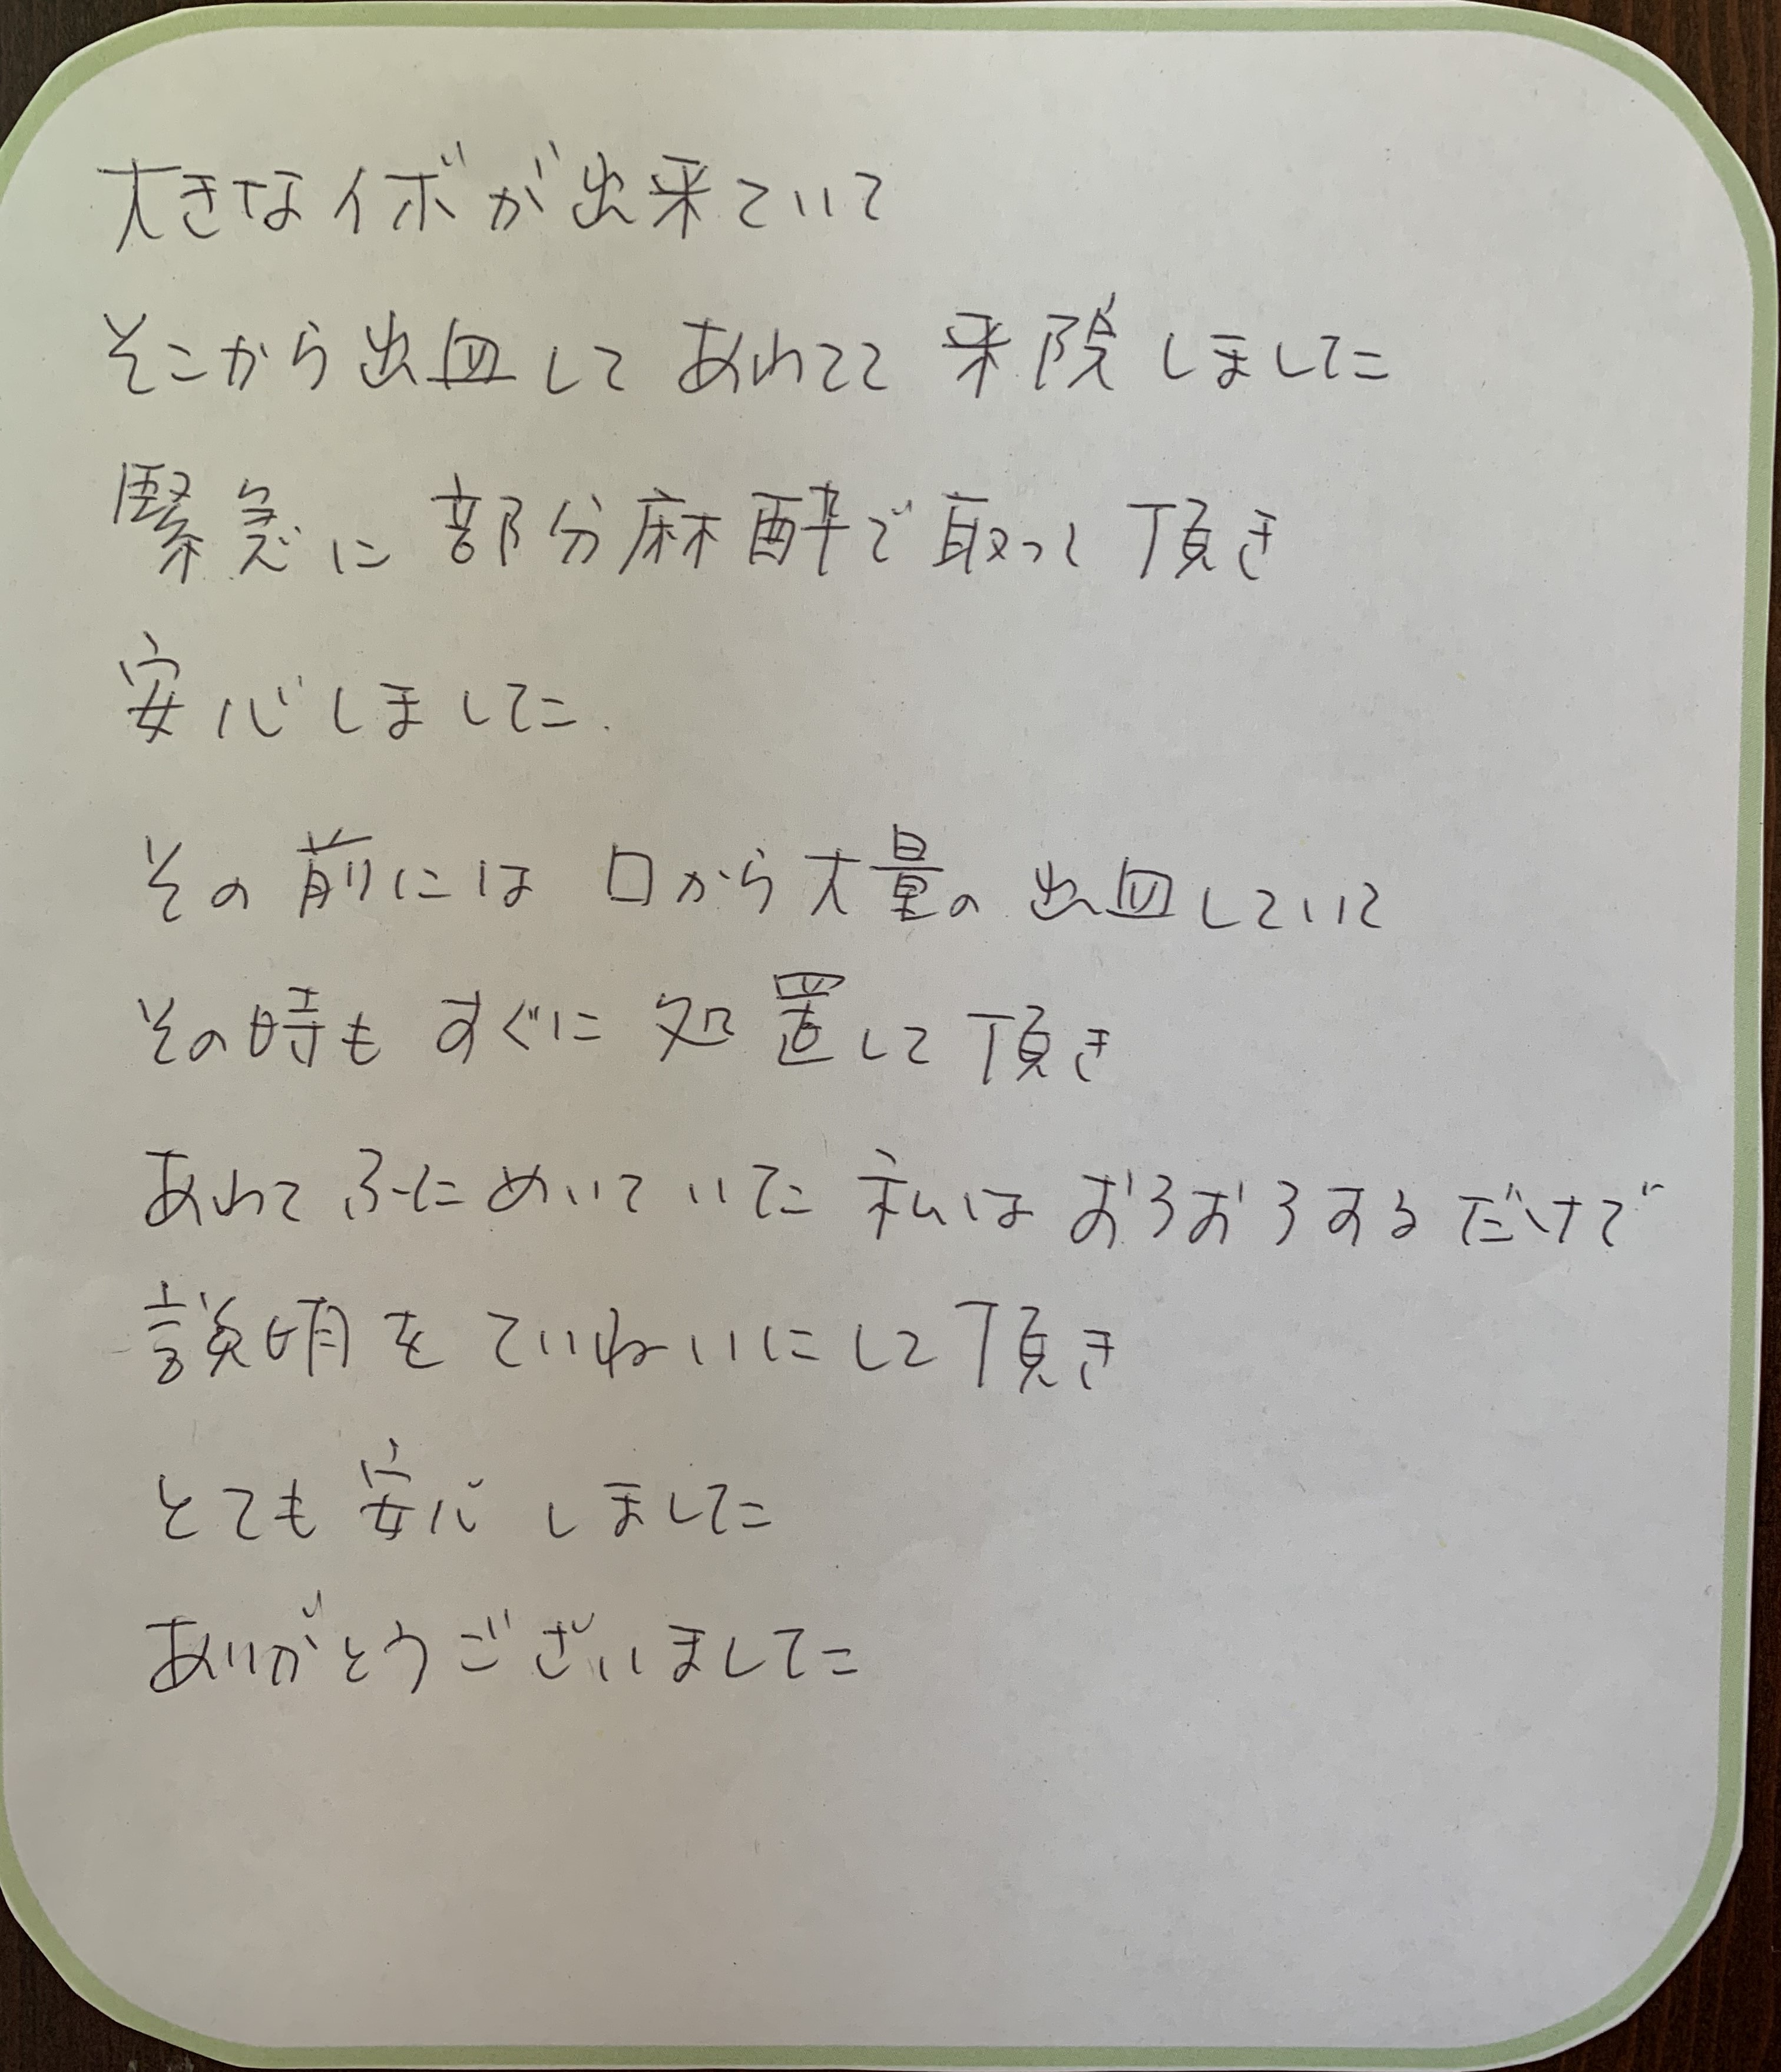 大きなイボが出来ていて
そこから出血して あわてて 来院しました
緊急に 部分麻酔で取って 頂き
安心しました.
その前には 口から大量の 出血していて
その時も すぐに 処置して 頂き
あわてふためいていた 私は おろおろするだけで
説明を ていねいにして 頂き
とても安心 しました
ありがとうございました